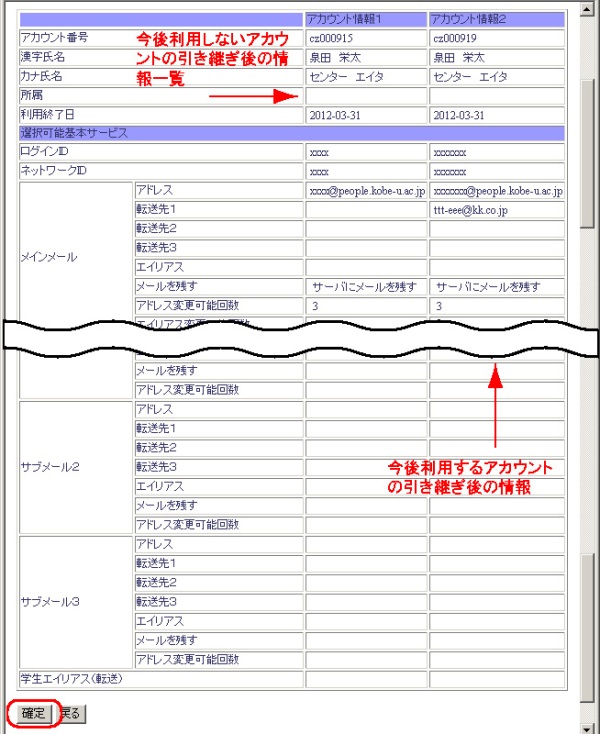 アカウント情報1 アカウント情報2
アカウント番号 cz000915 cz000919
今後利用しないアカウ
ントの引き継ぎ後の情
報一覧
漢字氏名 泉田 栄太 泉田 栄太
カナ氏名 センター エイタ センター エイタ
所属
利用終了日 2012-03-31 2012-03-31
選択可能基本サービス
ログインID xxxx xxxxxxx
ネットワークID xxxx xxxxxxx
メインメール
アドレス xxxx@people.kobe-u.ac.jp xxxxxxx@people.kobe-u.ac.jp
転送先1 ttt-eee@kk.co.jp
転送先2
転送先3
エイリアス
メールを残す サーバにメールを残す サーバにメールを残す
アドレス変更可能回数 3 3
メールを残す
アドレス変更可能回数
サブメール2
アドレス
転送先1
転送先2
転送先3
エイリアス
メールを残す
アドレス変更可能回数
今後利用するアカウント
の引き継ぎ後の情報
サブメール3
アドレス
転送先1
転送先2
転送先3
エイリアス
メールを残す
アドレス変更可能回数
学生エイリアス(転送)
確定 戻る